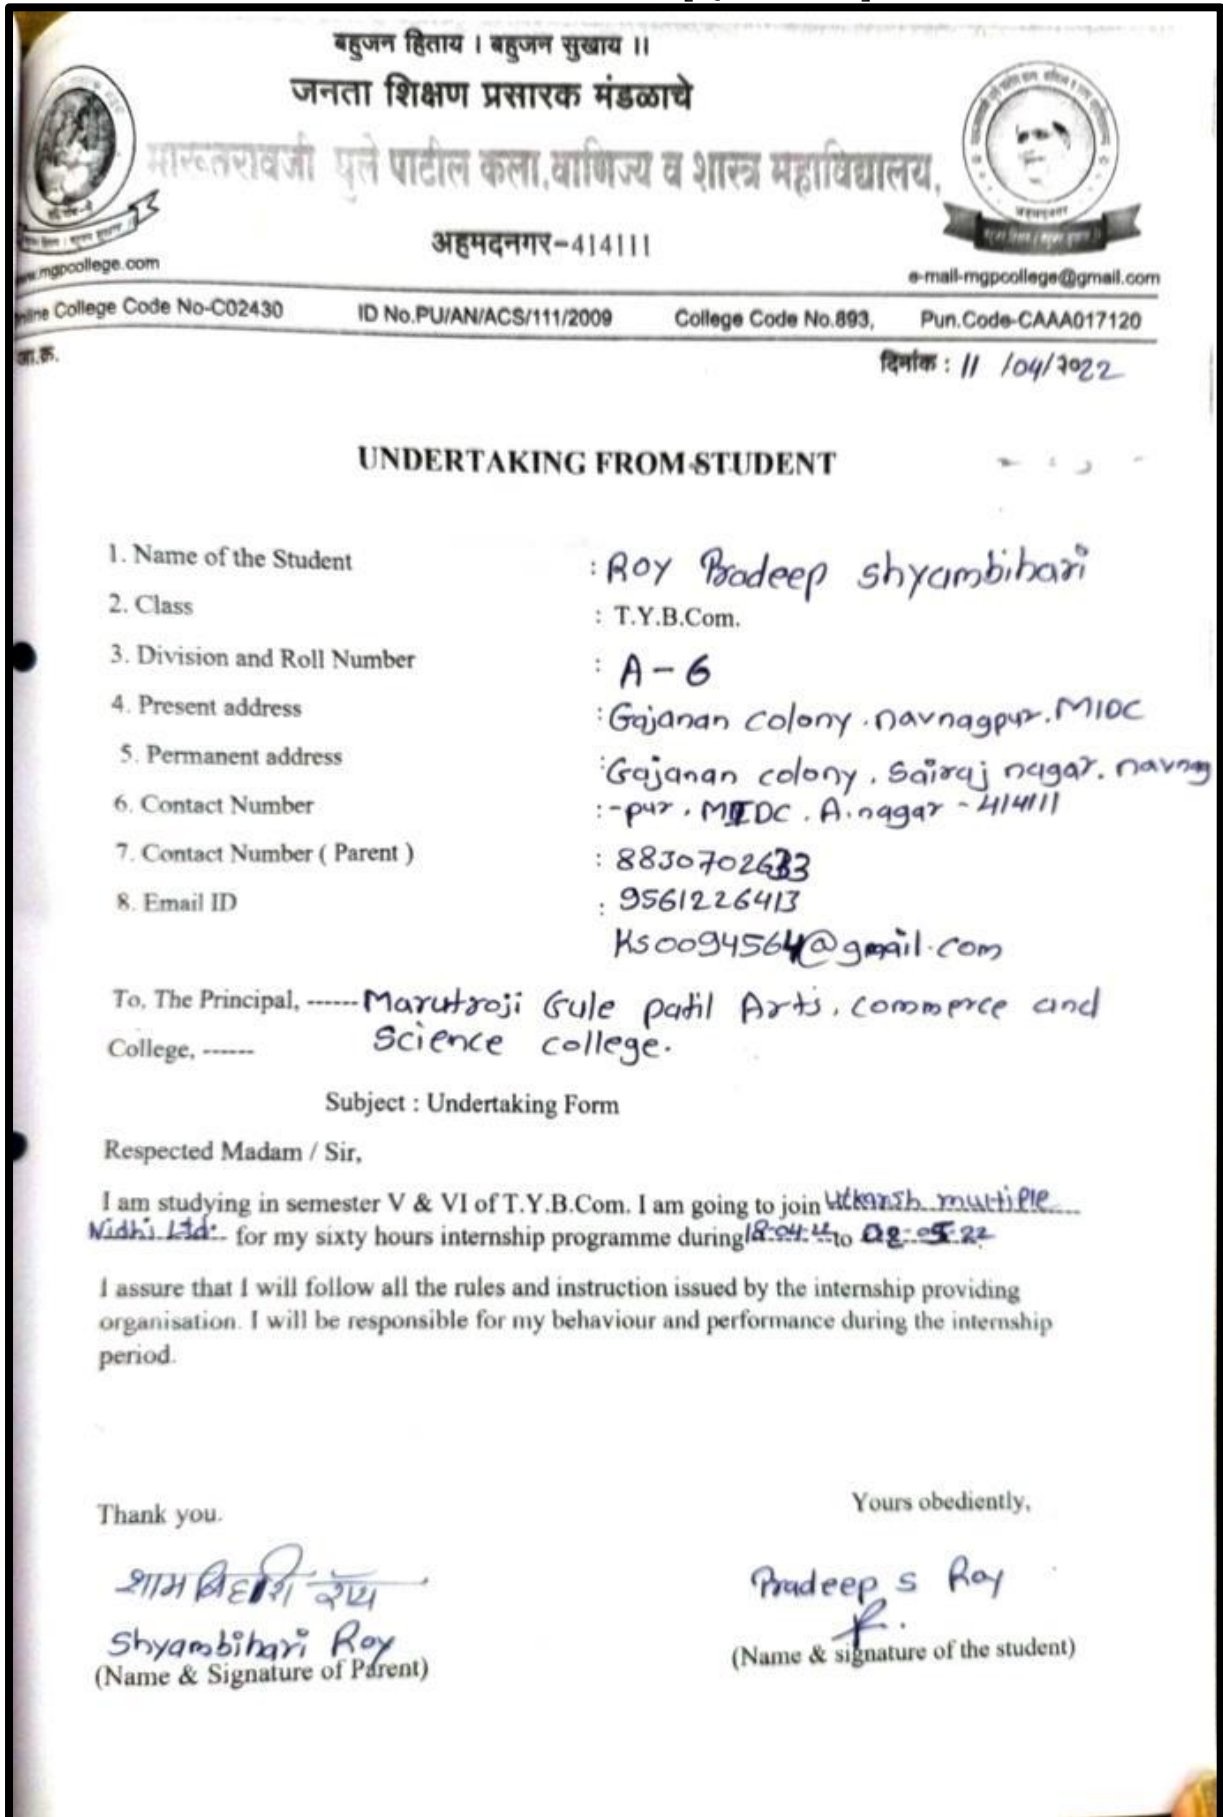 बहुजन हिताय । बहुजन सुखाय ।।
जनता शिक्षण प्रसारक मंडळाचे
पाटील कला,वाणिज्य व शास्त्र महाविद्यालय,
अहमदनगर-414111
mgpcollege.com
e-mail-mgpcollege@gmail.com
College Code No-C02430 ID No.PU/AN/ACS/111/2009 College Code No.893, Pun.Code-CAAA017120
जा.क्र.
दिनांक : 11 /04/2022
UNDERTAKING FROM STUDENT
1. Name of the Student : Roy Pradeep shyambihari
2. Class : T.Y.B.Com.
3. Division and Roll Number : A - 6
4. Present address : Gajanan colony. navnagpur. MIDC
5. Permanent address : Gajanan colony, Sairaj nagar. navnag
6. Contact Number : -pur. MIDC. A.nagar - 414111
7. Contact Number ( Parent ) : 8830702633
8. Email ID : 9561226413
Ks0094564@gmail.com
To, The Principal, ------ Marutroji Gule patil Arts, commerce and
College, ------ Science college.
Subject : Undertaking Form
Respected Madam / Sir,
I am studying in semester V & VI of T.Y.B.Com. I am going to join Utkarsh multiple
Nidhi Ltd. for my sixty hours internship programme during 18-04-22 to 08-05-22
I assure that I will follow all the rules and instruction issued by the internship providing
organisation. I will be responsible for my behaviour and performance during the internship
period.
Thank you.
Yours obediently,
Pradeep S Roy
Shyambihari Roy
(Name & Signature of Parent)
(Name & signature of the student)